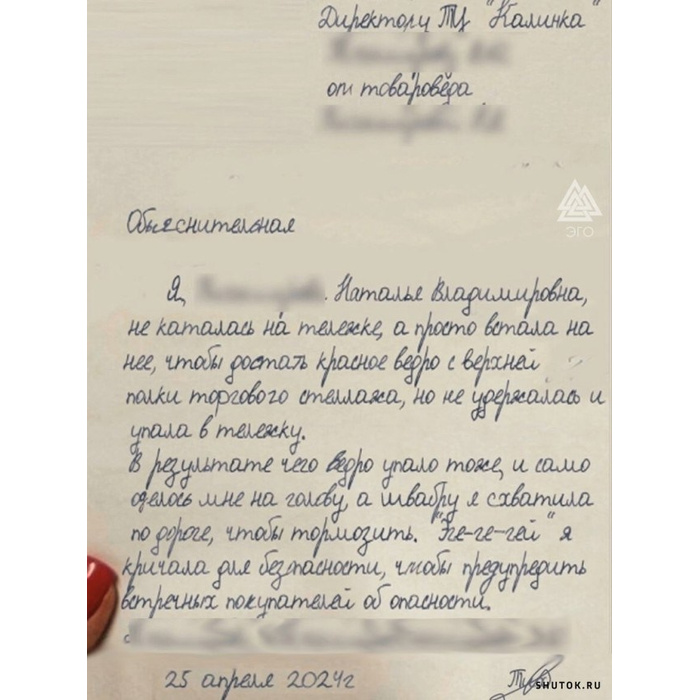 Директору ТЦ "Калинка"
от товароведа
ЭГО
Объяснительная
Я, Наталья Владимировна,
не каталась на тележке, а просто встала на
нее, чтобы достать красное ведро с верхней
полки торгового стеллажа, но не удержалась и
упала в тележку.
В результате чего ведро упало тоже, и само
оделось мне на голову, а швабру я схватила
по дороге, чтобы тормозить. "Эге-ге-гей" я
кричала для безопасности, чтобы предупредить
встречных покупателей об опасности.
25 апреля 2024г
SHUTOK.RU